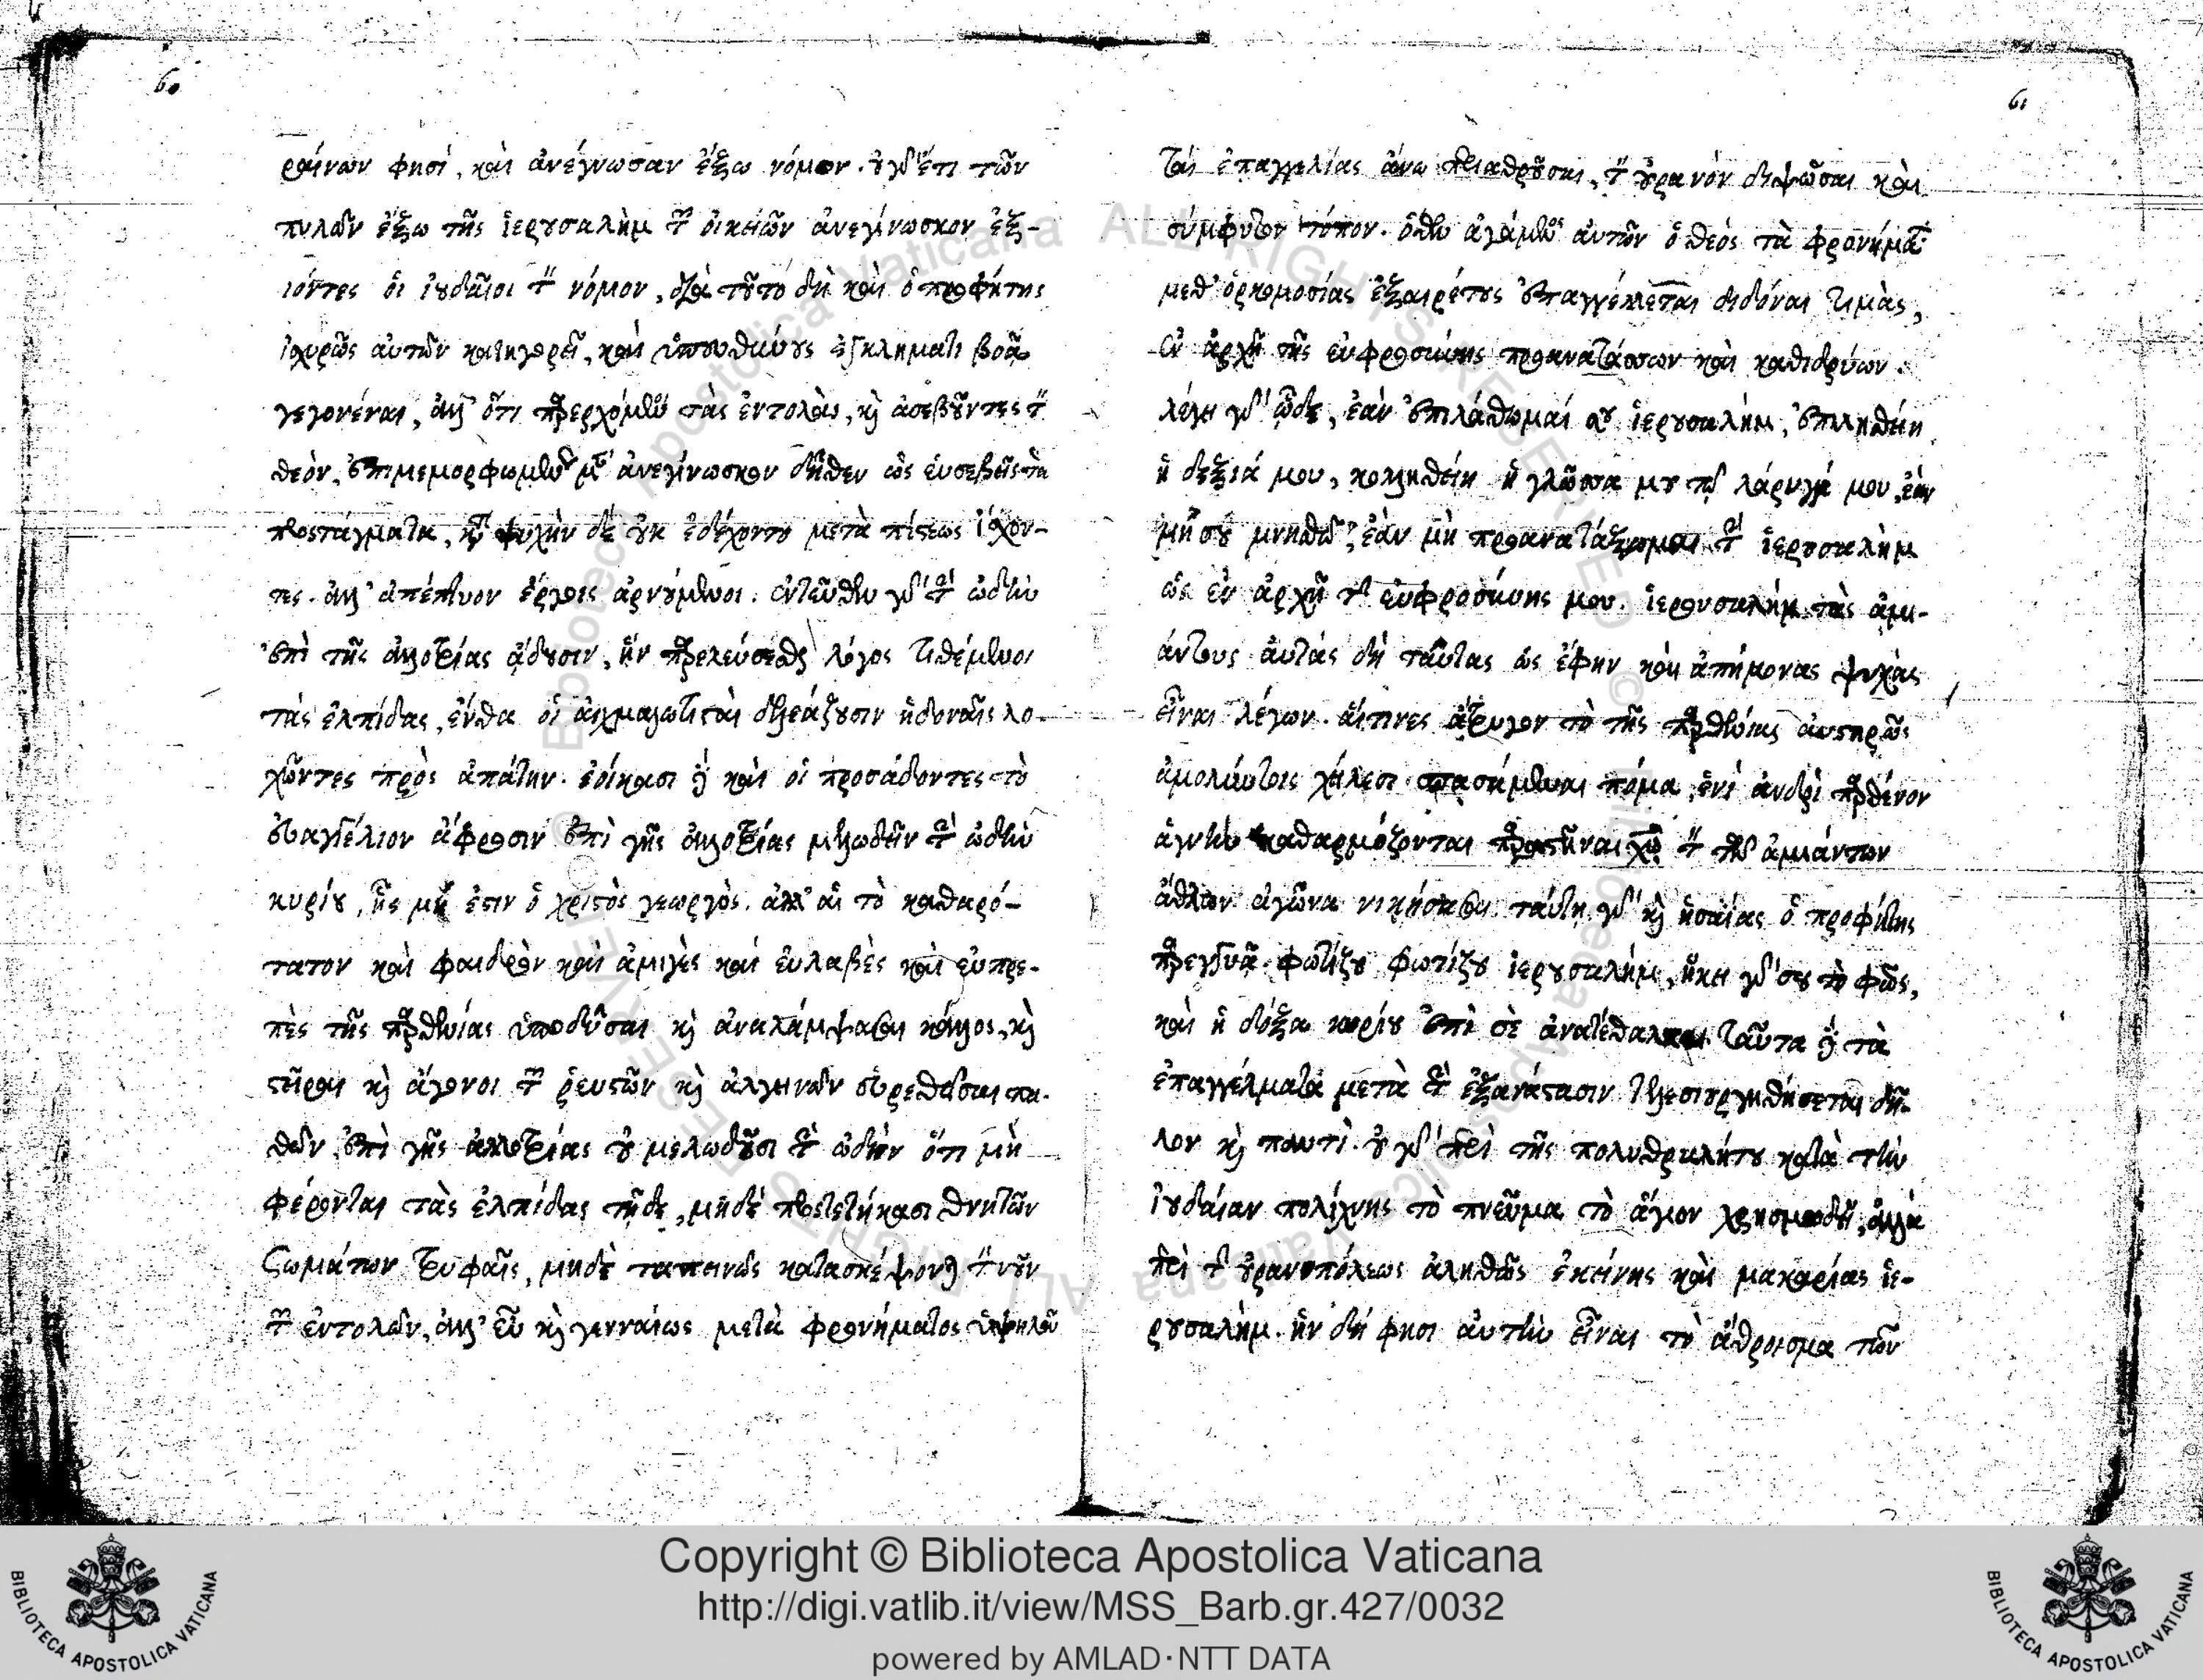 60
ραίνων φησί, καὶ ἀνέγνωσαν ἔξω νόμον. οὐ γὰρ ἔτι τῶν
πυλῶν ἔξω τῆς ἱερουσαλὴμ τῶν οἰκειῶν ἀνεγίνωσκον ἐξ-
ιόντες οἱ ἰουδαῖοι τὸν νόμον, διὰ τοῦτο δὴ καὶ ὁ προφήτης
ἰσχυρῶς αὐτῶν κατηγορεῖ, καὶ ὑπευθύνους ἐγκλήματι βοᾷ
γεγονέναι, ἀλλ' ὅτι παρερχόμενοι τὰς ἐντολὰς, καὶ ἀσεβοῦντες τὸν
θεὸν, ἀνεγίνωσκον δῆθεν ὡς εὐσεβεῖς τὰ
προστάγματα, ψυχὴν δὲ οὐκ ἐδέχοντο μετὰ πίστεως ἴσχον-
τες. ἀλλ' ἀπέπτυον ἔργοις ἀρνούμενοι. ἐντεῦθεν γὰρ τὴν ὠδὴν
ἐπὶ τῆς ἀλλοτρίας ᾄδουσιν, ἣν παρελεύσεσθαι λόγος τιθέμενοι
τὰς ἐλπίδας, ἔνθα οἱ αἰχμαλωτισταὶ δελεάζουσιν ἡδοναῖς λο-
χῶντες πρὸς ἀπάτην. ἐοίκασι δὲ καὶ οἱ προσάδοντες τὸ
εὐαγγέλιον ἄφροσιν ἐπὶ γῆς ἀλλοτρίας μελωδεῖν τὴν ὠδὴν
κυρίου, ἧς μή ἐστιν ὁ χριστὸς γεωργὸς. ἀλλ' αἱ τὸ καθαρό-
τατον καὶ φαιδρὸν καὶ ἀμιγὲς καὶ εὐλαβὲς καὶ εὐπρε-
πὲς τῆς παρθενίας ὑποδῦσαι καὶ ἀναλάμψασαι κάλλος, καὶ
στεῖραι καὶ ἄγονοι τῶν ῥευστῶν καὶ ἀλγεινῶν εὑρεθεῖσαι πα-
θῶν, ἐπὶ γῆς ἀλλοτρίας οὐ μελωδοῦσι τὴν ὠδὴν ὅτι μὴ
φέρονται τὰς ἐλπίδας τῇδε, μηδὲ προστετήκασι θνητῶν
σωμάτων τρυφαῖς, μηδὲ ταπεινῶς κατασκέψονται τὸν νοῦν
τῶν ἐντολῶν, ἀλλ' εὖ καὶ γενναίως μετὰ φρονήματος ὑψηλοῦ
61
τὰς ἐπαγγελίας ἄνω περιαθροῦσαι, τὸν οὐρανὸν διψῶσαι καὶ
σύμφυτον τόπον. ὅθεν ἀγάμενος αὐτῶν ὁ θεὸς τὰ φρονήματα
μεθ' ὁρκωμοσίας ἐξαιρέτους ἐπαγγέλλεται διδόναι τιμὰς,
ἐν ἀρχῇ τῆς εὐφροσύνης προανατάσσων καὶ καθιδρύων.
λέγει γὰρ ὧδε, ἐὰν ἐπιλάθωμαί σου ἱερουσαλήμ, ἐπιλησθείη
ἡ δεξιά μου, κολληθείη ἡ γλῶσσα μου τῷ λάρυγγί μου, ἐὰν
μή σου μνησθῶ, ἐὰν μὴ προανατάξωμαι τὴν ἱερουσαλὴμ
ὡς ἐν ἀρχῇ τῆς εὐφροσύνης μου. ἱερουσαλὴμ τὰς ἀμι-
άντους αὐτὰς δὴ ταύτας ὡς ἔφην καὶ ἀπήμονας ψυχὰς
εἶναι λέγων. αἵτινες ἄτρυγον τὸ τῆς παρθενίας αὐστηρῶς
ἀμολύντοις χείλεσι σπασάμεναι πόμα, ἑνὶ ἀνδρὶ παρθένον
ἁγνὴν καθαρμόζονται παραστῆναι χριστῷ τὸν τῶν ἀμιάντων
ἄθλων ἀγῶνα νικήσασαι. ταύτῃ γὰρ καὶ ἡσαΐας ὁ προφήτης
παρεγγυᾷ. φωτίζου φωτίζου ἱερουσαλὴμ, ἥκει γάρ σου τὸ φῶς,
καὶ ἡ δόξα κυρίου ἐπὶ σὲ ἀνατέταλκε. ταῦτα δὲ τὰ
ἐπαγγέλματα μετὰ τὴν ἐξανάστασιν τελεσιουργηθήσεται δῆ-
λον καὶ παντί. οὐ γὰρ περὶ τῆς πολυθρυλλήτου κατὰ τὴν
ἰουδαίαν πολίχνης τὸ πνεῦμα τὸ ἅγιον χρησμωδεῖ, ἀλλὰ
περὶ τῆς οὐρανοπόλεως ἀληθῶς ἐκείνης καὶ μακαρίας ἱε-
ρουσαλήμ. ἣν δή φησι αὐτὴν εἶναι τὸ ἄθροισμα τῶν
Copyright © Biblioteca Apostolica Vaticana
http://digi.vatlib.it/view/MSS_Barb.gr.427/0032
powered by AMLAD·NTT DATA
BIBLIOTECA APOSTOLICA VATICANA
BIBLIOTECA APOSTOLICA VATICANA